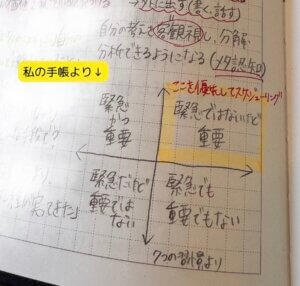 →外に出す(書く、話す)
自分の考えを客観視し、分解
分析できるようになる(メタ認知)
私の手帳より↓
ここを優先してスケジューリング
緊急
かつ
重要
緊急ではないけど
重要
緊急だけど
重要では
ない
緊急でも
重要でもない
7つの習慣より